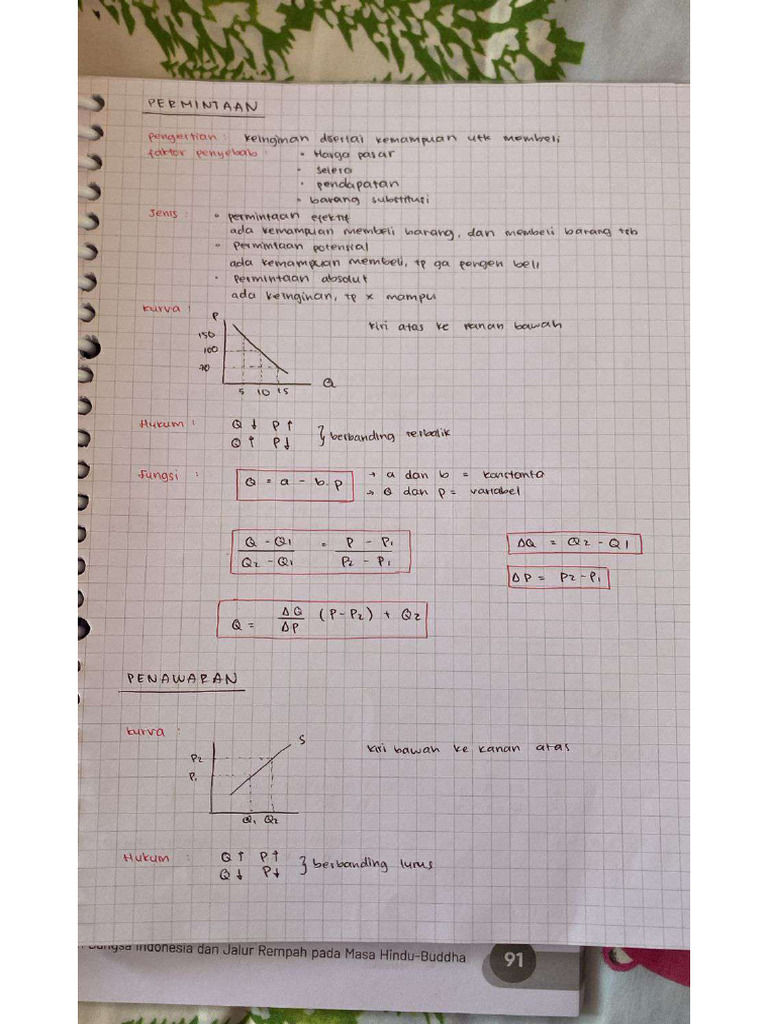 PERMINTAAN
pengertian : keinginan disertai kemampuan utk membeli
faktor penyebab : • Harga pasar
• selera
• pendapatan
• barang substitusi
Jenis : • permintaan efektif
ada kemampuan membeli barang, dan membeli barang tsb
• permintaan potensial
ada kemampuan membeli, tp ga pengen beli
• permintaan absolut
ada keinginan, tp x mampu
kurva :
kiri atas ke kanan bawah
P
150
100
70
5 10 15
Q
Hukum : Q ↓ P ↑
Q ↑ P ↓
} berbanding terbalik
fungsi : Q = a - b.p
→ a dan b = konstanta
→ Q dan p = variabel
Q - Q1 = P - P1
Q2 - Q1 P2 - P1
ΔQ = Q2 - Q1
ΔP = P2 - P1
Q = ΔQ (P - P2) + Q2
ΔP
PENAWARAN
kurva :
S
kiri bawah ke kanan atas
P2
P1
Q1 Q2
Hukum : Q ↑ P ↑
Q ↓ P ↓
} berbanding lurus
Bangsa Indonesia dan Jalur Rempah pada Masa Hindu-Buddha
91